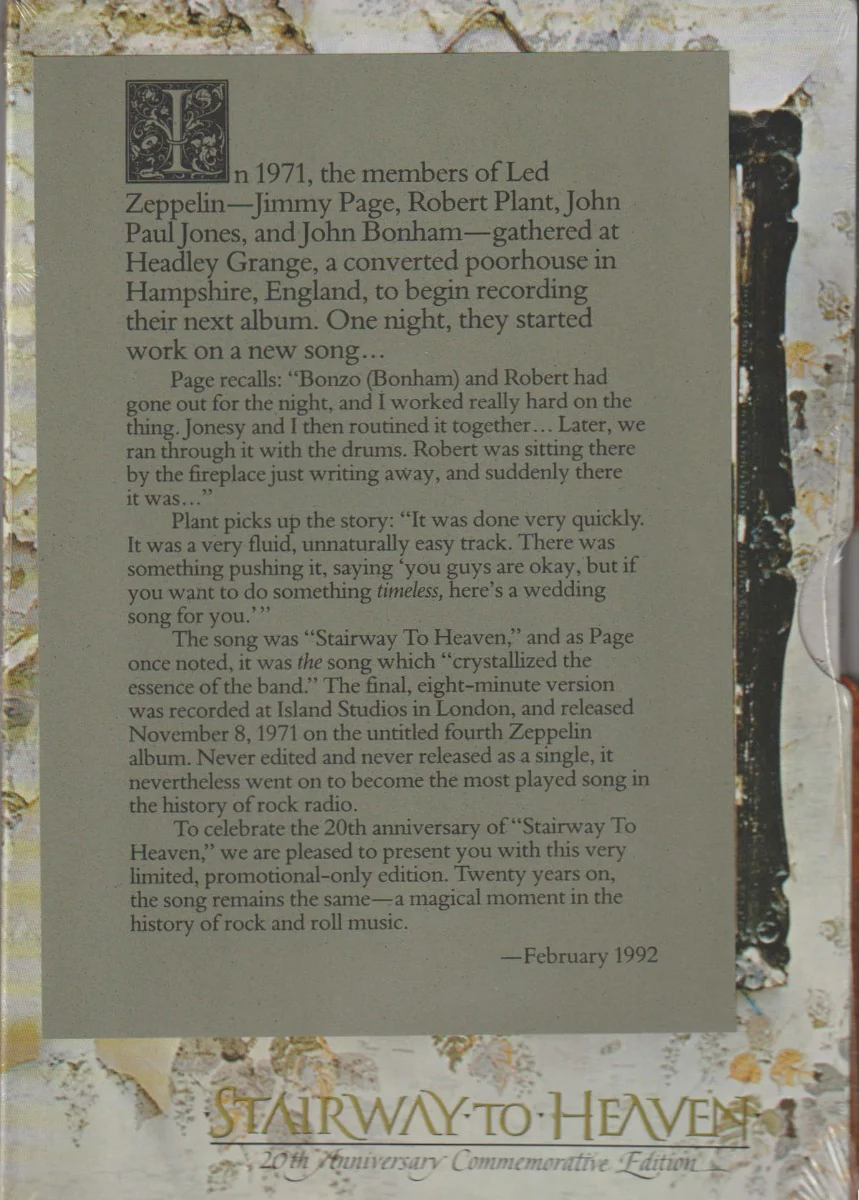 In 1971, the members of Led
Zeppelin—Jimmy Page, Robert Plant, John
Paul Jones, and John Bonham—gathered at
Headley Grange, a converted poorhouse in
Hampshire, England, to begin recording
their next album. One night, they started
work on a new song...
Page recalls: “Bonzo (Bonham) and Robert had
gone out for the night, and I worked really hard on the
thing. Jonesy and I then routined it together... Later, we
ran through it with the drums. Robert was sitting there
by the fireplace just writing away, and suddenly there
it was...”
Plant picks up the story: “It was done very quickly.
It was a very fluid, unnaturally easy track. There was
something pushing it, saying ‘you guys are okay, but if
you want to do something timeless, here’s a wedding
song for you.’”
The song was “Stairway To Heaven,” and as Page
once noted, it was the song which “crystallized the
essence of the band.” The final, eight-minute version
was recorded at Island Studios in London, and released
November 8, 1971 on the untitled fourth Zeppelin
album. Never edited and never released as a single, it
nevertheless went on to become the most played song in
the history of rock radio.
To celebrate the 20th anniversary of “Stairway To
Heaven,” we are pleased to present you with this very
limited, promotional-only edition. Twenty years on,
the song remains the same—a magical moment in the
history of rock and roll music.
—February 1992
STAIRWAY·TO·HEAVEN
20th Anniversary Commemorative Edition